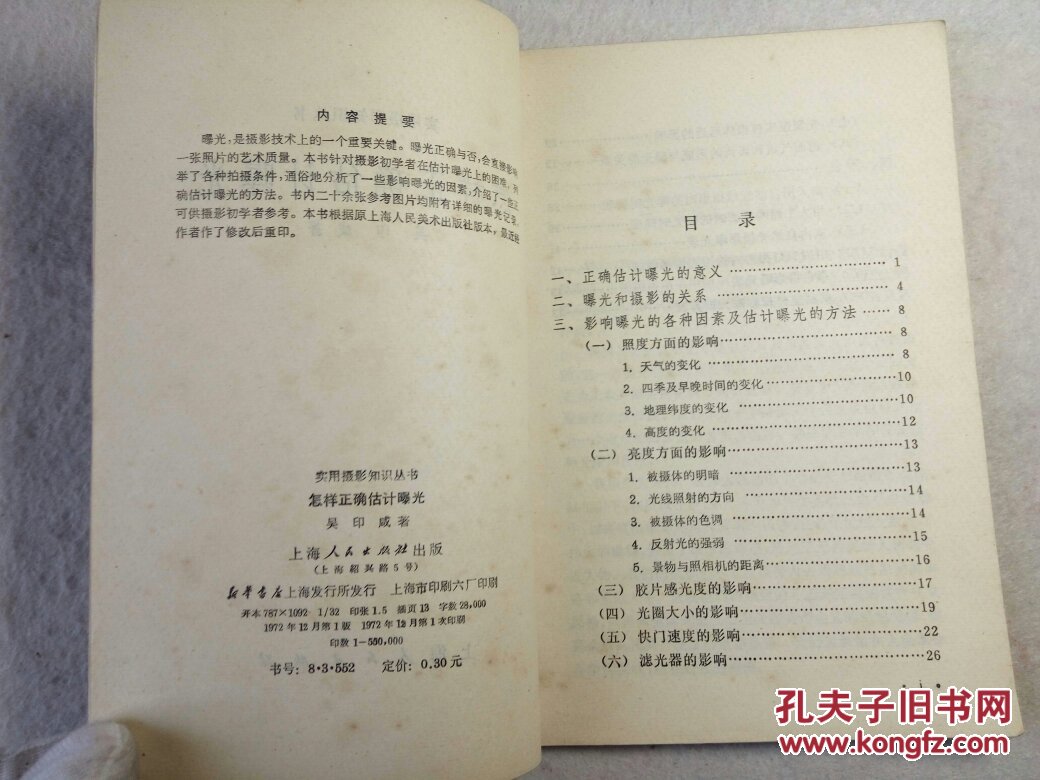 内容提要
曝光,是摄影技术上的一个重要关键。曝光正确与否,会直接影响
一张照片的艺术质量。本书针对摄影初学者在估计曝光上的困难,列
举了各种拍摄条件,通俗地分析了一些影响曝光的因素,介绍了一些正
确估计曝光的方法。书内二十余张参考图片均附有详细的曝光记录,
可供摄影初学者参考。本书根据原上海人民美术出版社版本,最近经
作者作了修改后重印。
实用摄影知识丛书
怎样正确估计曝光
吴印咸著
上海人民出版社出版
(上海绍兴路5号)
新华书店上海发行所发行 上海市印刷六厂印刷
开本787×1092 1/32 印张1.5 插页13 字数28,000
1972年12月第1版 1972年12月第1次印刷
印数1—550,000
书号:8·3·552 定价:0.30元
目 录
一、正确估计曝光的意义……1
二、曝光和摄影的关系……4
三、影响曝光的各种因素及估计曝光的方法……8
(一) 照度方面的影响……8
1. 天气的变化……8
2. 四季及早晚时间的变化……10
3. 地理纬度的变化……10
4. 高度的变化……12
(二) 亮度方面的影响……13
1. 被摄体的明暗……13
2. 光线照射的方向……14
3. 被摄体的色调……14
4. 反射光的强弱……15
5. 景物与照相机的距离……16
(三) 胶片感光度的影响……17
(四) 光圈大小的影响……19
(五) 快门速度的影响……22
(六) 滤光器的影响……26
· i ·
孔夫子旧书网
www.kongfz.com